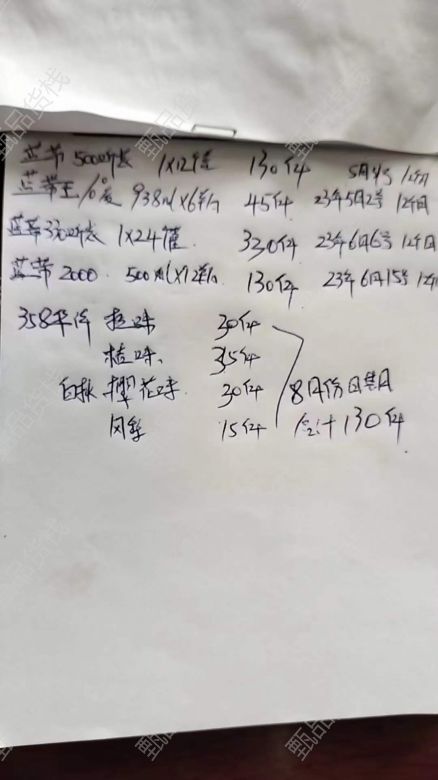 蓝带500听长 1X12罐 130件 5月4号 12个月
蓝带王10度 938ml X6瓶 45件 23年5月2号 12个月
蓝带330听长 1X24罐. 330件 23年6月6号 12个月
蓝带2000. 500ml X12瓶 130件 23年6月15号 12个
358 味 30件
味. 35件
白桃 樱花味. 30件 8月份日期
15件 合计130件
甄品货栈